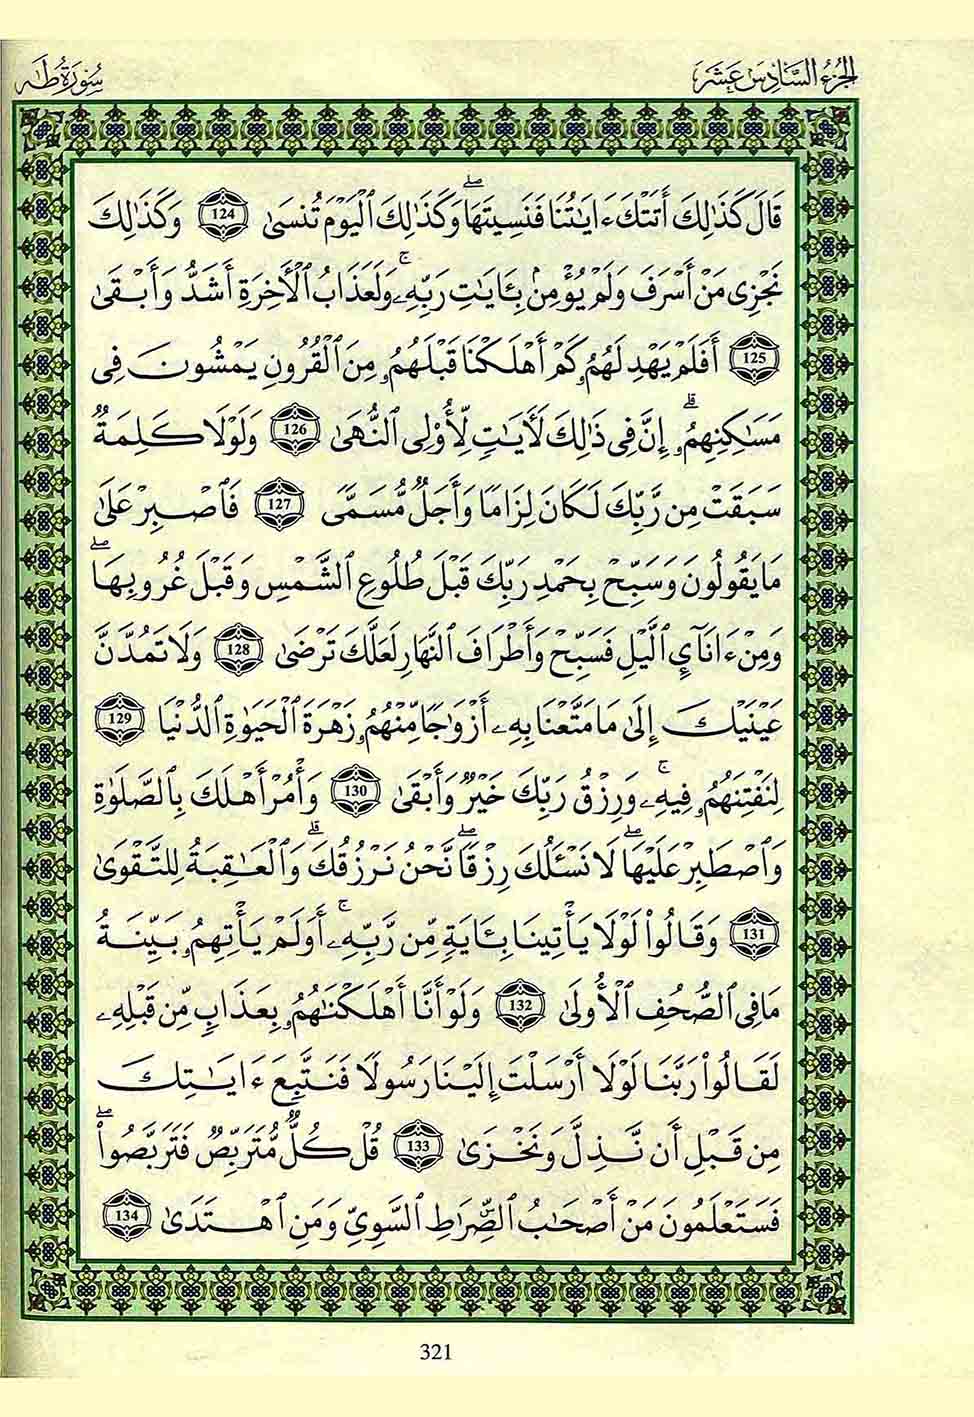 الجزء السادس عشر
سورة طه
قَالَ كَذَٰلِكَ أَتَتْكَ ءَايَٰتُنَا فَنَسِيتَهَا ۖ وَكَذَٰلِكَ ٱلْيَوْمَ تُنسَىٰ 124 وَكَذَٰلِكَ
نَجْزِى مَنْ أَسْرَفَ وَلَمْ يُؤْمِنۢ بِـَٔايَٰتِ رَبِّهِۦ ۚ وَلَعَذَابُ ٱلْأَخِرَةِ أَشَدُّ وَأَبْقَىٰ
125 أَفَلَمْ يَهْدِ لَهُمُۥ كَمْ أَهْلَكْنَا قَبْلَهُمُۥ مِنَ ٱلْقُرُونِ يَمْشُونَ فِى
مَسَٰكِنِهِمُۥ ۗ إِنَّ فِى ذَٰلِكَ لَأَيَٰتٍ لِّأُوْلِى ٱلنُّهَىٰ 126 وَلَوْلَا كَلِمَةٌ
سَبَقَتْ مِن رَّبِّكَ لَكَانَ لِزَامًا وَأَجَلٌ مُّسَمًّى 127 فَٱصْبِرْ عَلَىٰ
مَا يَقُولُونَ وَسَبِّحْ بِحَمْدِ رَبِّكَ قَبْلَ طُلُوعِ ٱلشَّمْسِ وَقَبْلَ غُرُوبِهَا ۖ
وَمِنْ ءَانَآيِٕ ٱلَّيْلِ فَسَبِّحْ وَأَطْرَافَ ٱلنَّهَارِ لَعَلَّكَ تَرْضَىٰ 128 وَلَا تَمُدَّنَّ
عَيْنَيْكَ إِلَىٰ مَا مَتَّعْنَا بِهِۦ أَزْوَٰجًا مِّنْهُمُۥ زَهْرَةَ ٱلْحَيَوٰةِ ٱلدُّنْيَا 129
لِنَفْتِنَهُمُۥ فِيهِۦ ۚ وَرِزْقُ رَبِّكَ خَيْرٌ وَأَبْقَىٰ 130 وَأْمُرْ أَهْلَكَ بِٱلصَّلَوٰةِ
وَٱصْطَبِرْ عَلَيْهَا ۖ لَا نَسْـَٔلُكَ رِزْقًا ۖ نَّحْنُ نَرْزُقُكَ ۗ وَٱلْعَٰقِبَةُ لِلتَّقْوَىٰ
131 وَقَالُواْ لَوْلَا يَأْتِينَا بِـَٔايَةٍ مِّن رَّبِّهِۦ ۚ أَوَلَمْ يَأْتِهِمُۥ بَيِّنَةُ
مَا فِى ٱلصُّحُفِ ٱلْأُولَىٰ 132 وَلَوْ أَنَّا أَهْلَكْنَٰهُمُۥ بِعَذَابٍ مِّن قَبْلِهِۦ
لَقَالُواْ رَبَّنَا لَوْلَا أَرْسَلْتَ إِلَيْنَا رَسُولًا فَنَتَّبِعَ ءَايَٰتِكَ
مِن قَبْلِ أَن نَّذِلَّ وَنَخْزَىٰ 133 قُلْ كُلٌّ مُّتَرَبِّصٌ فَتَرَبَّصُواْ ۖ
فَسَتَعْلَمُونَ مَنْ أَصْحَٰبُ ٱلصِّرَٰطِ ٱلسَّوِىِّ وَمَنِ ٱهْتَدَىٰ 134
321